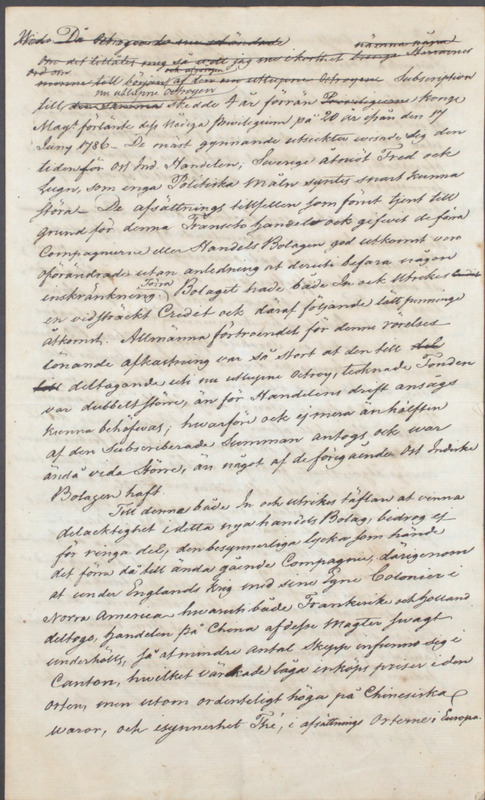 Hwdo Då Octrogen de nu utöndade
nämna några
Om det tillåtes mig så wäl jag nu i korthet
ord om
och afseende
monne till början af den nu utlupne Octroyens Subscription
nu utlupne Octroyen
till den samma skedde 4 år förrän Privilegierne Kongl
Mayt förlänte dess Nådiga Privilegium på 20 år ifrån den 17
Juny 1786 – De mäst gynnande utsickter visade sig den
tiden för Ost Ind. Handelen, Sverige åtniöt Fred och
Lugn, som inga Politiska Måln syntes snart kunna
störa – De afsättnings tillfällen som förut tjent till
grund för denna Transito handels och gifvit de förra
Compagnierne eller Handels Bolagen god utkomst voro
oförändrade utan anledning at deruti befara någon
inskränkning, Förra Bolaget hade både In och Utrikes
en vidsträckt Credit och däraf följande lätt penninge
åtkomst. Allmänna förtroendet för denna rörelses
lönande afkastning var så stort at den till
deltagande uti nu utlupne Octroy, tecknade Fonden
var dubbelt större, än för Handelens drift ansågs
kunna behöfvas; hwarföre och ej mera än hälften
af den Subscriberade Summan antogs och war
ändå vida större, än något af de föregående Ost Indiske
Bolagen haft.
Till denna både In och utrikes täflan at vinna
delacktighet i detta nya handels Bolag, bidrog ej
för ringa del, den besynnerliga lycka som hände
det förra då till ända gående Compagnie, därigenom
at under Englands Krig med sine egne Colonier i
Norra America hwaruti både Frankrik och Holland
deltogo, Handelen på China af desse Magter swagt
underhölts, så at mindre antal Skepp infunno sig i
Canton, hwilket värckade låga inköps priser i den
orten, men utom ordenteligt höga på Chinesiska
waror, och isynnerhet Thé, i afsättnings Orterne i Europa.